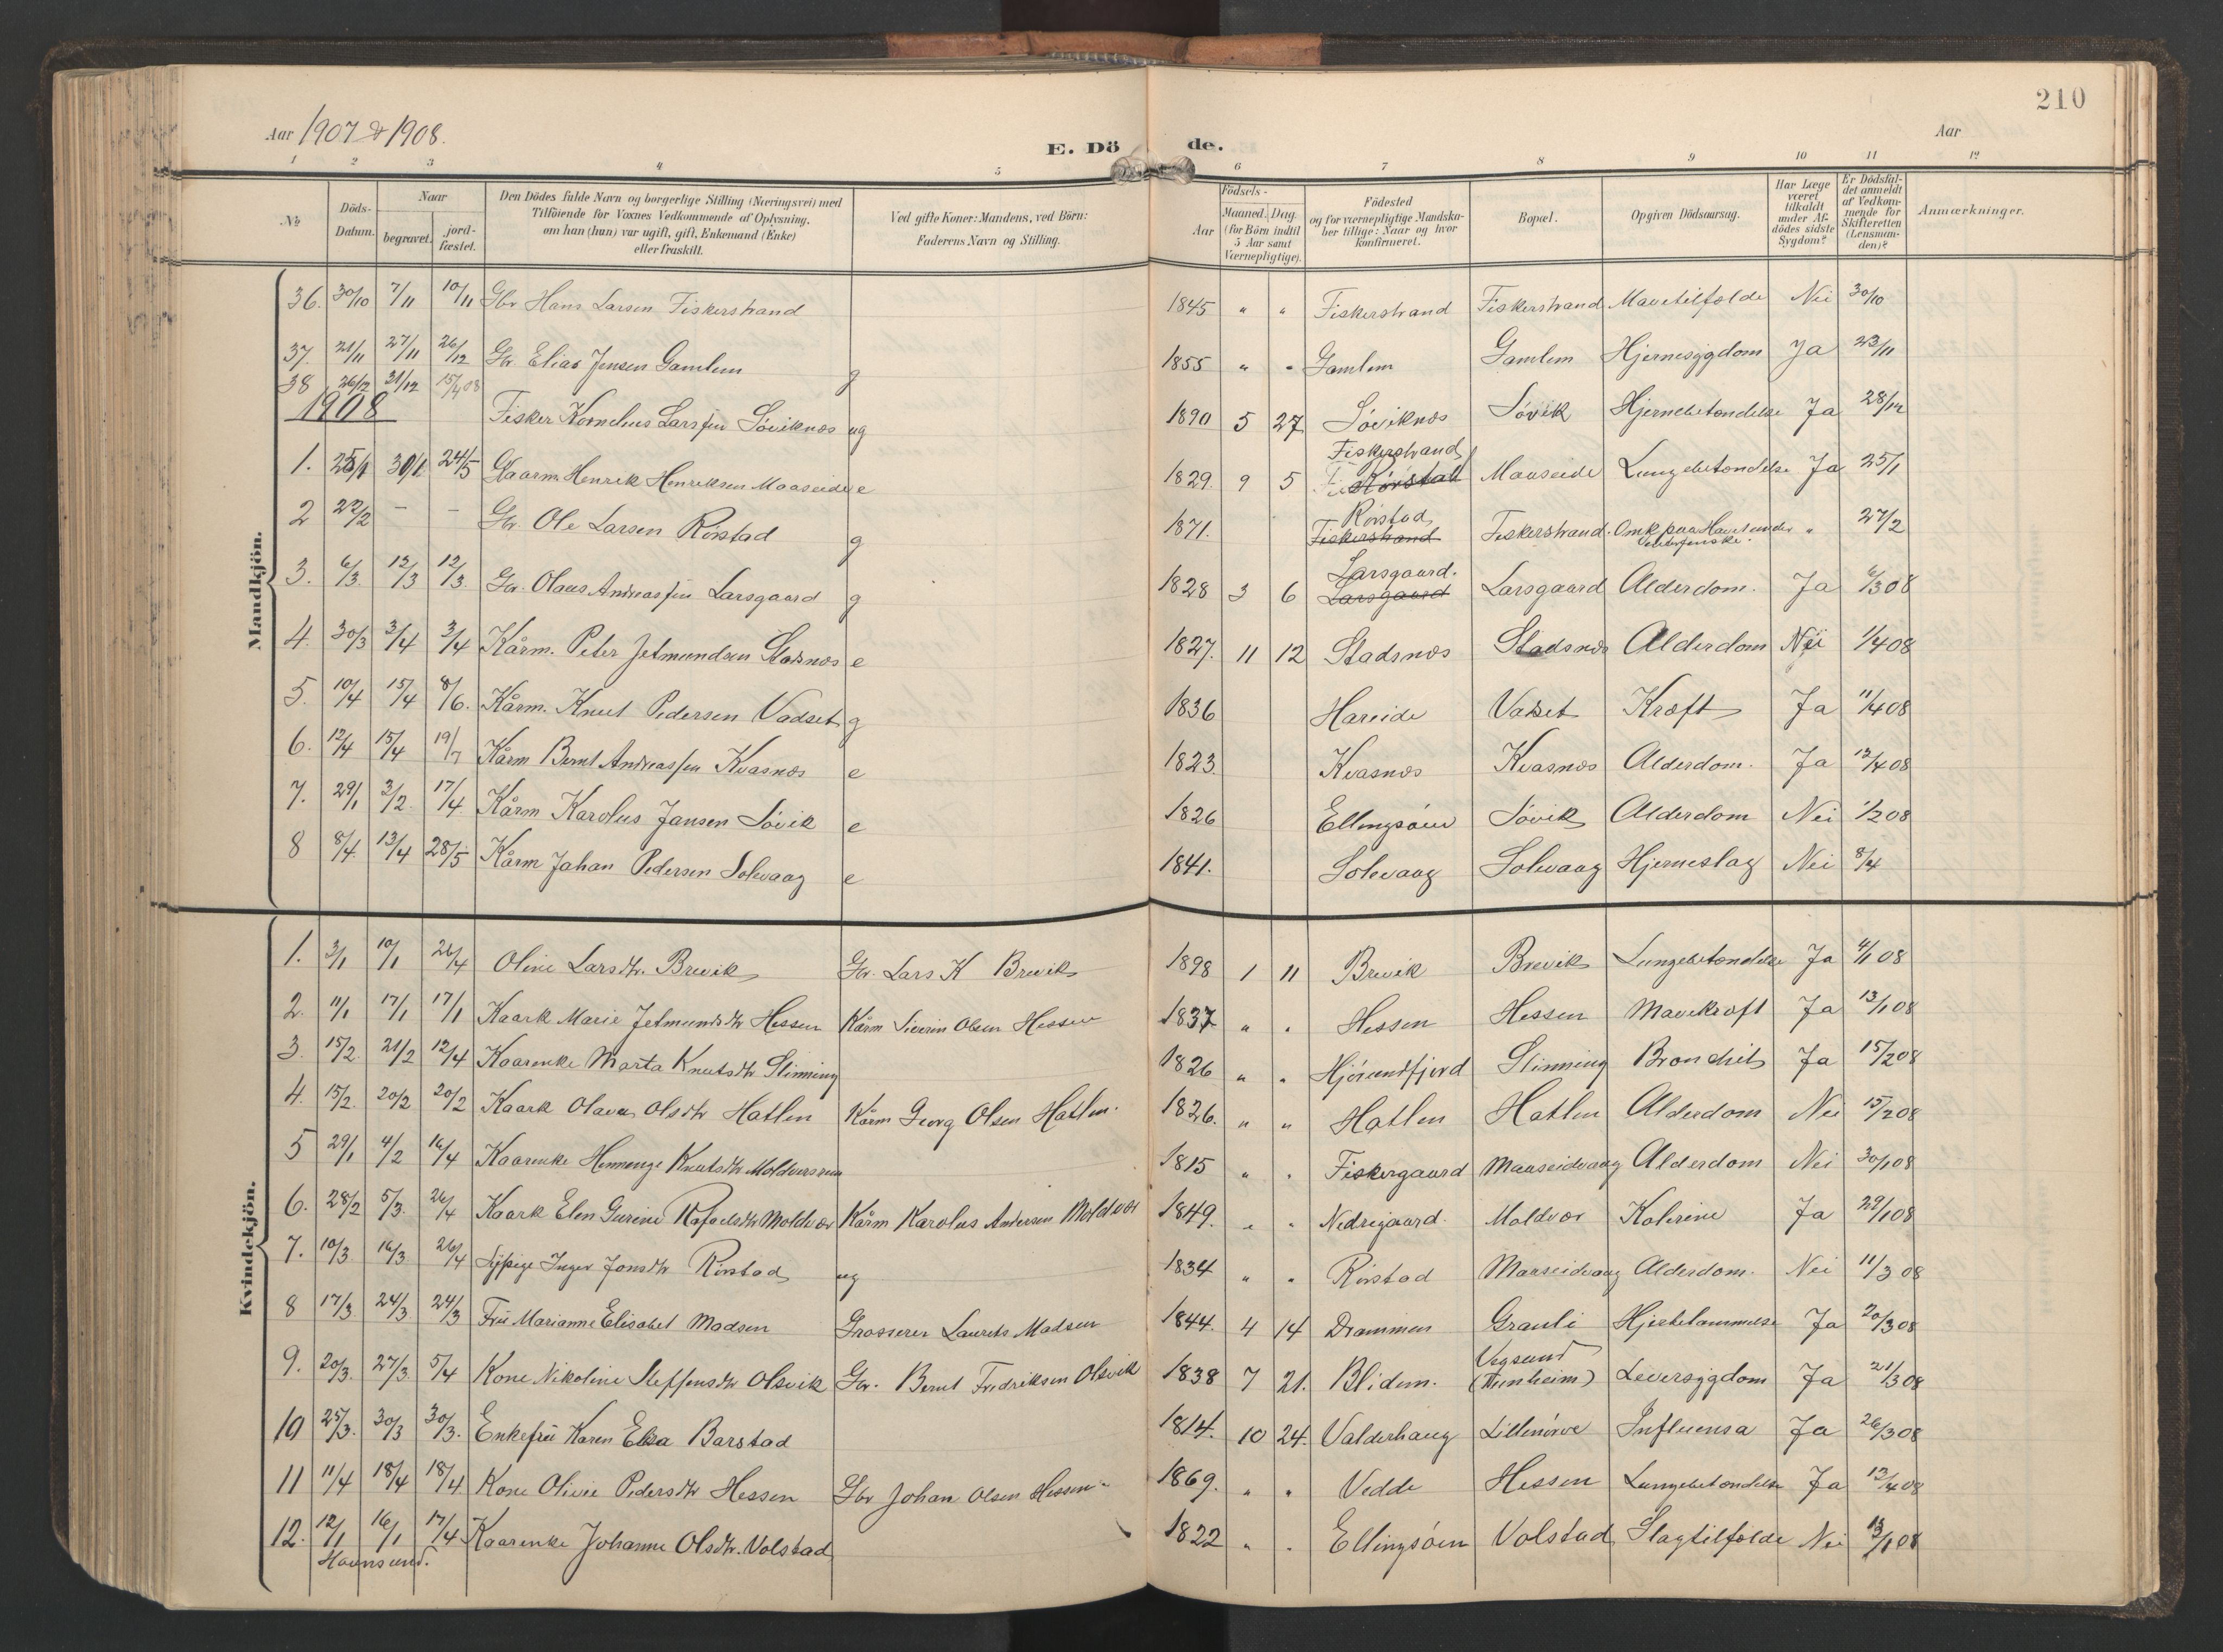 210
Aar 1907 & 1908.
E. Dö de.
Aar
1 2 3 4 5 6 7 8 9 10 11 12
No
Döds-Datum.
Naar
begravet.
jord-fæstet.
Den Dödes fulde Navn og borgerlige Stilling (Næringsvei) med
Tilföiende for Voxnes Vedkommende af Oplysning,
om han (hun) var ugift, gift, Enkemand (Enke)
eller fraskilt.
Ved gifte Koner: Mandens, ved Börn:
Faderens Navn og Stilling.
Födsels-
Aar
Maaned. Dag.
(for Börn indtil
5 Aar samt
Værnepligtige).
Födested
og for værnepligtige Mandska-
ber tillige: Naar og hvor
konfirmeret.
Bopæl.
Opgiven Dödsaarsag.
Har Læge
været
tilkaldt
under Af-
dödes sidste
Sygdom?
Er Dödsfal-
det anmeldt
af Vedkom-
mende for
Skifteretten
(Lensman-
den)?
Anmærkninger.
Mandkjön.
36. 30/10 7/11 10/11 Gbr Hans Larsen Fiskerstrand 1845 " " Fiskerstrand Fiskerstrand Mavetilfælde Nei 30/10
37. 21/11 27/11 26/12 Gbr. Elias Jensen Gamlem g 1855 " " Gamlem Gamlem Hjernesygdom Ja 23/11
38 26/12 31/12 15/4 08 Fisker Kornelius Larssen Søviknæs ug 1890 5 27 Søviknæs Søvik Hjernebetændelse Ja 28/12
1908
1. 25/1 30/1 24/5 Kaarm. Henrik Henriksen Maaseide e 1829. 9 5 Fiskerstrand Rörstad Maaseide Lungebetændelse Ja 25/1
2 22/2 - - Gbr. Ole Larsen Rörstad g 1871. Rörstad Fiskerstrand Fiskerstrand. Omk. paa Havet under Vinterfiske. " 27/2
3. 6/3 12/3 12/3. Gbr. Olaus Andreassen Larsgaard g 1828 3 6 Larsgaard. Larsgaard Larsgaard Alderdom. Ja 6/3 08
4. 30/3 3/4 3/4 Kårm. Peter Jetmundsen Stadsnæs e 1827. 11 12 Stadsnæs Stadsnæs Alderdom Nei 1/4 08
5. 10/4 15/4 8/6. Kårm. Knut Pedersen Vadset g 1836 Hareide Vadset Kræft Ja 11/4 08
6. 12/4 15/4 19/7 Kårm Bernt Andreassen Kvasnæs e 1823. Kvasnæs Kvasnæs Alderdom. Ja 12/4 08
7. 29/1 3/2. 17/4 Kårm Karolus Jansen Søvik e 1826 Ellingsöen Søvik Alderdom Nei 1/2 08
8 8/4. 13/4 28/5 Kårm Johan Pedersen Solevaag e 1841. Solevaag Solevaag Hjerneslag Nei 8/4
Kvindekjön.
1. 3/1 10/1 26/4 Oline Larsdtr. Brevik Gbr. Lars K Brevik 1898 1 11 Brevik Brevik Lungebetændelse Ja 4/1 08
2. 11/1 17/1 17/1 Kaark Marie Jetmundsdtr Hessen Kårm Severin Olsen Hessen 1837 " " Hessen Hessen Mavekræft Ja 13/1 08
3. 15/2. 21/2 12/4 Kaarenke Marta Knutsdtr Slinning 1826 " " Hjörundfjord Slinning Bronchit Ja 15/2 08
4. 15/2. 20/2 20/2 Kaark Olava Olsdtr Hatlen Kårm Georg Olsen Hatlen. 1826. " " Hatlen Hatlen Alderdom Nei 15/2 08
5 29/1 4/2 16/4 Kaarenke Knutsdtr 1815 " " Fiskergaard Maaseidvaag Alderdom Nei 30/1 08
6. 28/2 5/3. 26/4 Kaark Elen Gurine Rafaelsdtr Moldvær Kårm Karolus Andersen Moldvær 1849. " " Nedregaard. Moldvær Kolerine Ja 29/1 08
7. 10/3. 16/3. 26/4 Inger Jonsdtr Rörstad ug 1834 " " Rörstad Maaseidvaag Alderdom. Nei 11/3 08
8 17/3. 24/3. 24/3 Frü Marianne Elisabet Madsen Grosserer Laurits Madsen 1844. 4 14 Drammen Grauli Hjertelammelse Ja 20/3 08
9. 20/3. 27/3. 5/4 Kone Nikoline Steffensdtr Olsvik Gbr. Bernt Fredriksen Olsvik 1838 7 21. Blidem. Vegsund (Tunheim) Leversygdom Ja 21/3 08
10 25/3. 30/3 30/3. Enkefrü Karen Elisa Barstad 1814. 10 24. Valderhaug Influensa Ja 26/3 08
11 11/4 18/4 18/4 Kone Olivie Pedersdtr Hessen Gbr Johan Olsen Hessen 1869. " " Vedde Hessen Lungebetændelse Ja 12/4 08
12. 12/1 16/1 17/4 Kaarenke Johanne Olsdtr. Volstad 1822 " " Ellingsöen Volstad Slagtilfælde Nei 13/1 08
Havnsund.